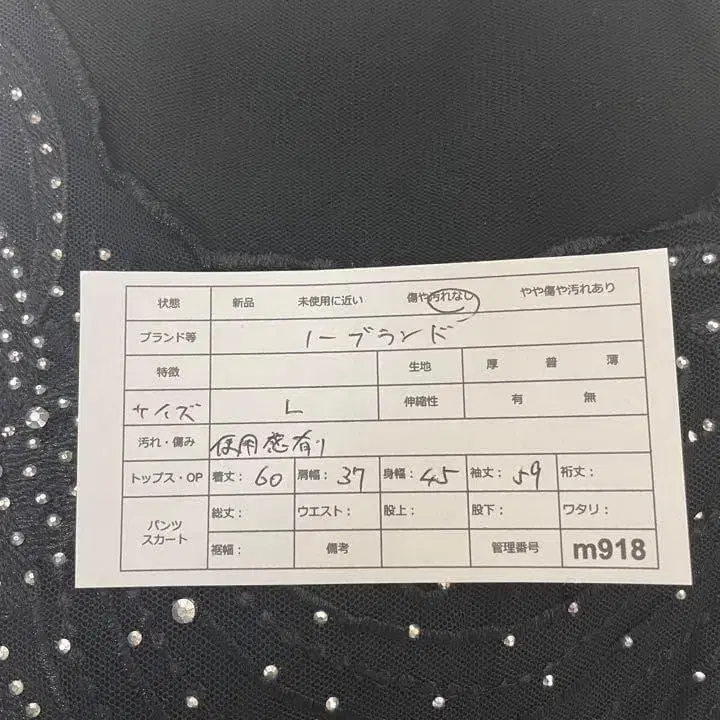 状態 新品 未使用に近い 傷や汚れなし やや傷や汚れあり
ブランド等 ノーブランド
特徴 生地 厚 普 薄
サイズ L 伸縮性 有 無
汚れ・傷み 使用感有り
トップス・OP 着丈: 60 肩幅: 37 身幅: 45 袖丈: 59 裄丈:
パンツ スカート 総丈: ウエスト: 股上: 股下: ワタリ:
裾幅: 備考 管理番号 m918